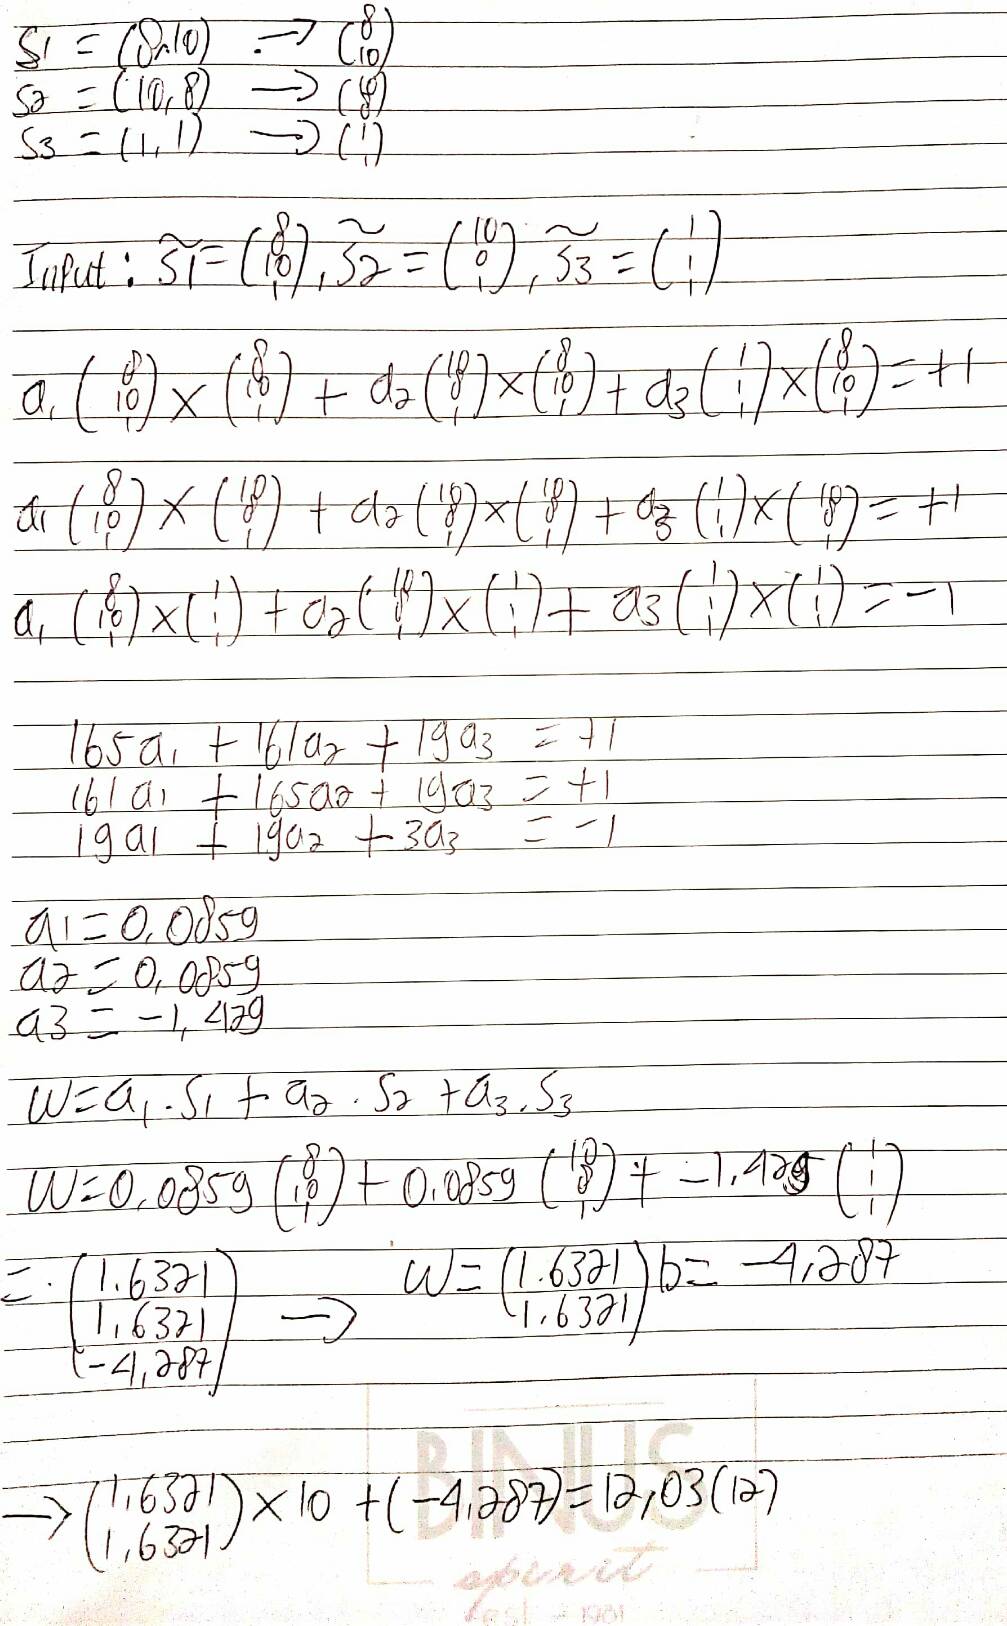 S1 = (8,10) → (8 10)
S2 = (10,8) → (10 8)
S3 = (1,1) → (1 1)
Input: S̃1 = (8 10 1), S̃2 = (10 8 1), S̃3 = (1 1 1)
a1 (8 10 1) × (8 10 1) + a2 (10 8 1) × (8 10 1) + a3 (1 1 1) × (8 10 1) = +1
a1 (8 10 1) × (10 8 1) + a2 (10 8 1) × (10 8 1) + a3 (1 1 1) × (10 8 1) = +1
a1 (8 10 1) × (1 1 1) + a2 (10 8 1) × (1 1 1) + a3 (1 1 1) × (1 1 1) = -1
165a1 + 161a2 + 19a3 = +1
161a1 + 165a2 + 19a3 = +1
19a1 + 19a2 + 3a3 = -1
a1 = 0,0859
a2 = 0,0859
a3 = -1,429
W = a1.S1 + a2.S2 + a3.S3
W = 0,0859 (8 10 1) + 0,0859 (10 8 1) + -1,429 (1 1 1)
= (1.6321 1,6321 -4,287) → W = (1.6321 1,6321) b = -4,287
→ (1,6321 1,6321) × 10 + (-4,287) = 12,03 (12)
BINUS
spirit